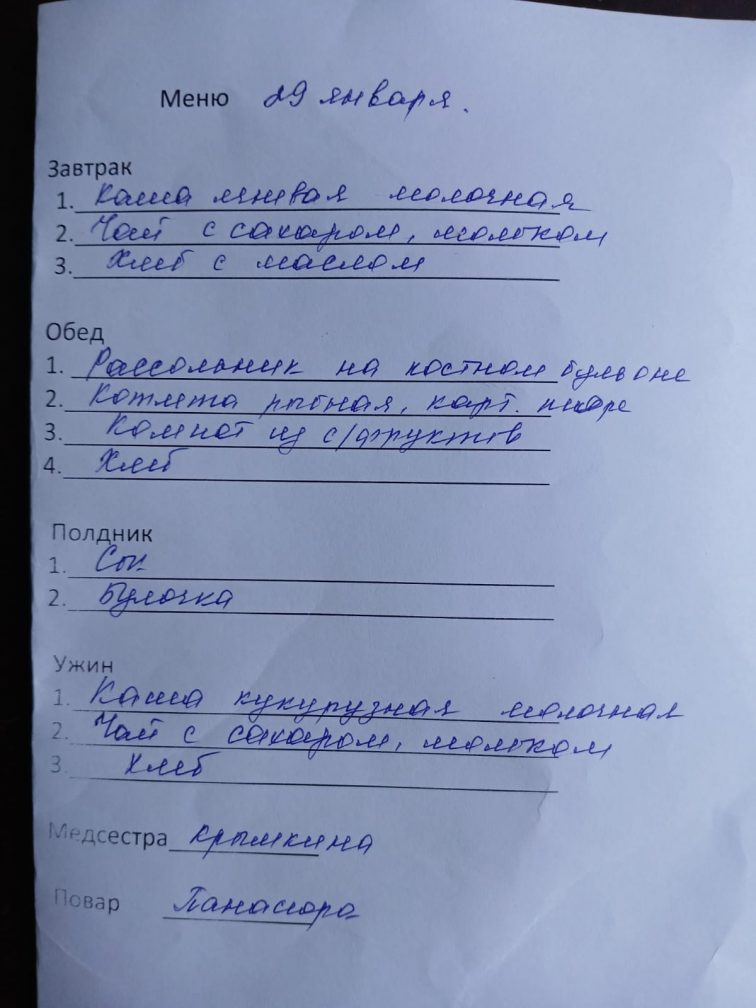 Меню 29 января.
Завтрак
1. Каша ячневая молочная
2. Чай с сахаром, молоком
3. Хлеб с маслом
Обед
1. Рассольник на костном бульоне
2. Котлета рыбная, карт. пюре
3. Компот из с/фруктов
4. Хлеб
Полдник
1. Сок
2. Булочка
Ужин
1. Каша кукурузная молочная
2. Чай с сахаром, молоком
3. Хлеб
Медсестра Крымкина
Повар